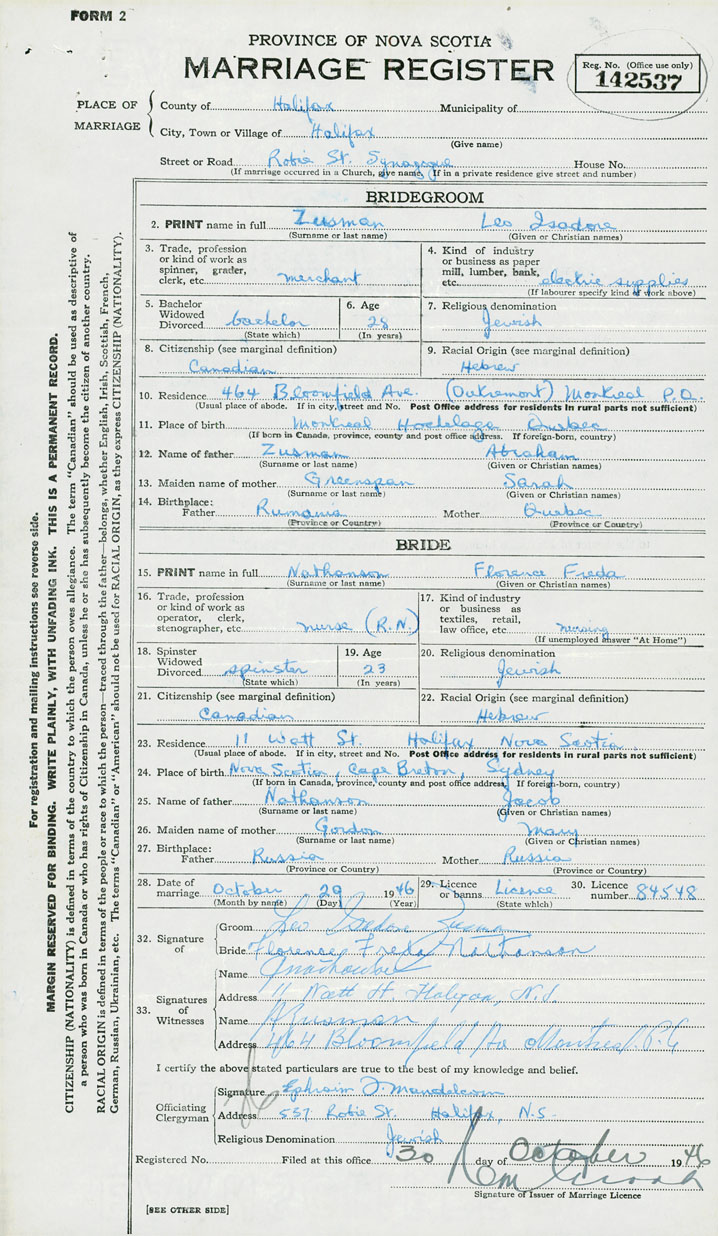 FORM 2
PROVINCE OF NOVA SCOTIA
MARRIAGE REGISTER
Reg. No. (Office use only)
142537
PLACE OF MARRIAGE
County of Halifax Municipality of
City, Town or Village of Halifax
(Give name)
Street or Road Robie St. Synagogue House No.
(If marriage occurred in a Church, give name. If in a private residence give street and number)
BRIDEGROOM
2. PRINT name in full Zusman Leo Isadore
(Surname or last name) (Given or Christian names)
3. Trade, profession or kind of work as spinner, grader, clerk, etc. merchant
4. Kind of industry or business as paper mill, lumber, bank, etc. electric supplies
(If labourer specify kind of work above)
5. Bachelor Widowed Divorced bachelor
(State which)
6. Age 28
(In years)
7. Religious denomination Jewish
8. Citizenship (see marginal definition) Canadian
9. Racial Origin (see marginal definition) Hebrew
10. Residence 464 Bloomfield Ave. (Outremont) Montreal P.Q.
(Usual place of abode. If in city, street and No. Post Office address for residents in rural parts not sufficient)
11. Place of birth Montreal Hochelaga Quebec
(If born in Canada, province, county and post office address. If foreign-born, country)
12. Name of father Zusman Abraham
(Surname or last name) (Given or Christian names)
13. Maiden name of mother Greenspan Sarah
(Surname or last name) (Given or Christian names)
14. Birthplace: Father Rumania Mother Quebec
(Province or Country) (Province or Country)
BRIDE
15. PRINT name in full Nathanson Florence Freda
(Surname or last name) (Given or Christian names)
16. Trade, profession or kind of work as operator, clerk, stenographer, etc. nurse (R.N.)
17. Kind of industry or business as textiles, retail, law office, etc. nursing
(If unemployed answer "At Home")
18. Spinster Widowed Divorced spinster
(State which)
19. Age 23
(In years)
20. Religious denomination Jewish
21. Citizenship (see marginal definition) Canadian
22. Racial Origin (see marginal definition) Hebrew
23. Residence 11 Watt St. Halifax Nova Scotia
(Usual place of abode. If in city, street and No. Post Office address for residents in rural parts not sufficient)
24. Place of birth Nova Scotia, Cape Breton, Sydney
(If born in Canada, province, county and post office address. If foreign-born, country)
25. Name of father Nathanson Jacob
(Surname or last name) (Given or Christian names)
26. Maiden name of mother Gordon Mary
(Surname or last name) (Given or Christian names)
27. Birthplace: Father Russia Mother Russia
(Province or Country) (Province or Country)
28. Date of marriage October 29 1946
(Month by name) (Day) (Year)
29. Licence or banns Licence
(State which)
30. Licence number 84548
32. Signature of
Groom Leo Isadore Zusman
Bride Florence Freda Nathanson
33. Signatures of Witnesses
Name
Address 11 Watt St Halifax, N.S.
Name A Zusman
Address 464 Bloomfield Ave Montreal P.Q
I certify the above stated particulars are true to the best of my knowledge and belief.
Officiating Clergyman
Signature Ephraim Mandelcorn
Address 537 Robie St. Halifax, N.S.
Religious Denomination Jewish
Registered No. Filed at this office 30 day of October 1946
Signature of Issuer of Marriage Licence
[SEE OTHER SIDE]
For registration and mailing instructions see reverse side.
MARGIN RESERVED FOR BINDING. WRITE PLAINLY, WITH UNFADING INK. THIS IS A PERMANENT RECORD.
CITIZENSHIP (NATIONALITY) is defined in terms of the country to which the person owes allegiance. The term "Canadian" should be used as descriptive of
a person who was born in Canada or who has rights of Citizenship in Canada, unless he or she has subsequently become the citizen of another country.
RACIAL ORIGIN is defined in terms of the people or race to which the person—traced through the father—belongs, whether English, Irish, Scottish, French,
German, Russian, Ukrainian, etc. The terms "Canadian" or "American" should not be used for RACIAL ORIGIN, as they express CITIZENSHIP (NATIONALITY).